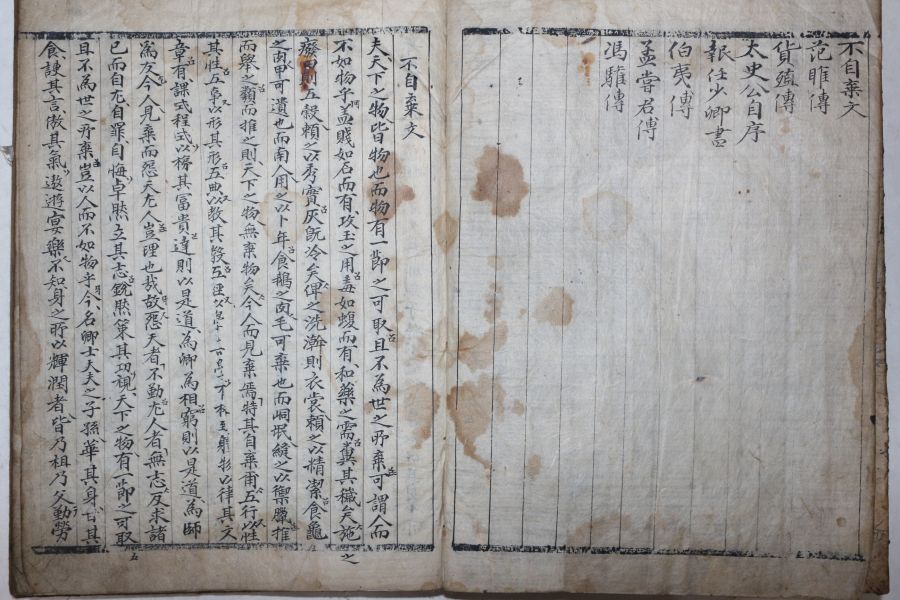 不自棄文
范睢傳
貨殖傳
太史公自序
報任少卿書
伯夷傳
孟嘗君傳
馮驩傳
不自棄文
夫天下之物皆物也而物有一節之可取且不為世之所棄可謂人而
不如物乎盖賤如石而有攻玉之用毒如蝮而有和藥之需糞其穢矣施之
癈田則五穀賴之以秀實灰旣冷矣俾之洗澣則衣裳賴之以精潔食龜
之肉甲可遺也而南人用之以卜年食鵝之肉毛可棄也而峒民縫之以禦臘推
而舉之類而推之則天下之物無棄物矣今人而見棄焉特其自棄爾五行以性
其性五事以形其形五典以教其教五
以律其文
章有課式程式以榜其富貴達則以是道為卿為相窮則以是道為師
為友今人見棄而怨天尤人豈理也哉故怨天者不勤尤人者無志反求諸
已而自尤自罪自悔卓然立其志銳然策其功視天下之物有一節之可取
且不為世之所棄豈以人而不如物乎今名卿士大夫之子孫華其身甘其
食諛其言傲其氣遨遊宴樂不知身之所以輝潤者皆乃祖乃父勤勞
五